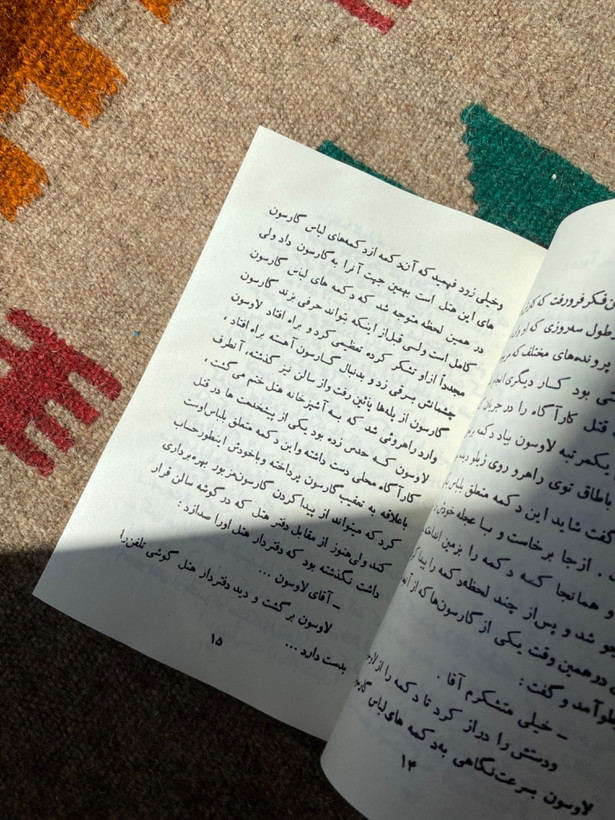 فکر فرورفت که
طول سه روزی که او
پرونده‌های مختلف که
بود کسار دیگری
قتل کارآگاه را در جریان
یکمرتبه لاوسون بیاد دکمه
باطاق توی راهرو روی زیلو
گفت شاید این دکمه متعلق
. ازجا برخاست و بسا عجله خودش
و همانجا کسه دکمه را بزمین
شد و پس از چند لحظه دکمه را پیدا
در همین وقت یکی از گارسون‌ها که از
جلو آمد و گفت :
ـ خیلی متشکرم آقا .
ودستش را دراز کرد تا دکمه را از
لاوسون بسرعت نگاهی به دکمه های لباس
۱۴
وخیلی زود فهمید که آن دکمه از دکمه‌های لباس گارسون
های این هتل است بهمین جهت آنرا به گارسون داد ولی
در همین لحظه متوجه شد که دکمه های لباس گارسون
کامل است ولسی قبل از اینکه بتواند حرفی بزند گارسون
مجدداً از او تشکر کرده تعظیمی کرد و براه افتاد لاوسون
چشمانش بسرقی زد و بدنبال گسارسون آهسته براه افتاد ،
گارسون از پله‌ها پائین رفت و از سالن نیز گذشته، آنطرف
وارد راهروئی شد که بسه آشپزخانه هتل ختم می گشت ،
لاوسون کسه حدس زده بود یکی از پیشخدمت ها در قتل
کارآگاه محلی دست داشته و این دکمه متعلق بلباس اوست
باعلاقه به تعقیب گارسون پرداخته و باخودش اینطور حساب
کرد که میتواند از پیدا کردن گارسون مزبور بهره برداری
کند ولی هنوز از مقابل دفتر هتل که در گوشه سالن قرار
داشت نگذشته بود که دفتردار هتل اورا صدا زد :
ـ آقای لاوسون ...
لاوسون برگشت و دید دفتردار هتل گوشی تلفن را
بدست دارد ...
۱۵